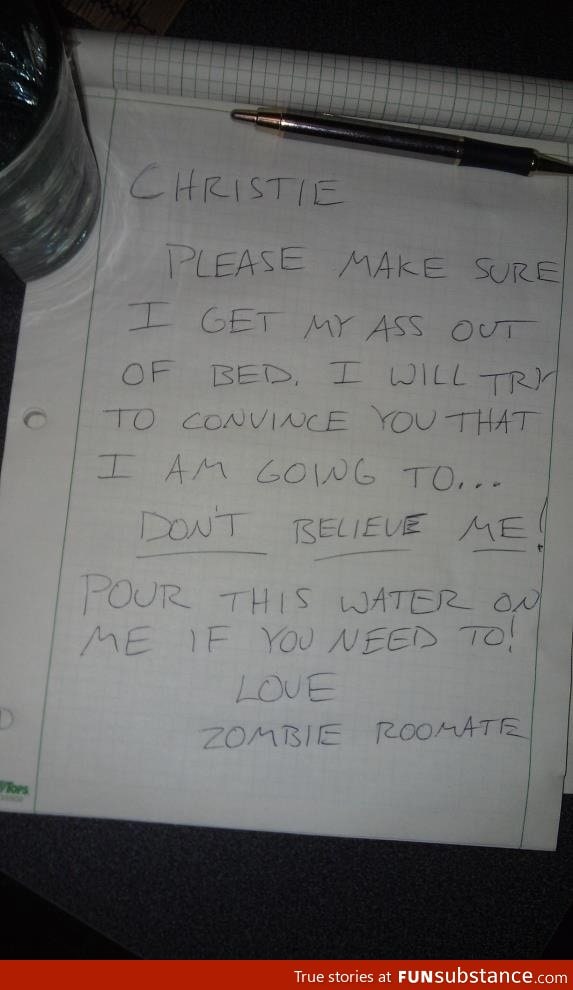 CHRISTIE
PLEASE MAKE SURE
I GET MY ASS OUT
OF BED. I WILL TRY
TO CONVINCE YOU THAT
I AM GOING TO...
DON'T BELIEVE ME!
POUR THIS WATER ON
ME IF YOU NEED TO!
LOVE
ZOMBIE ROOMATE
TOPS
True stories at FUNsubstance.com